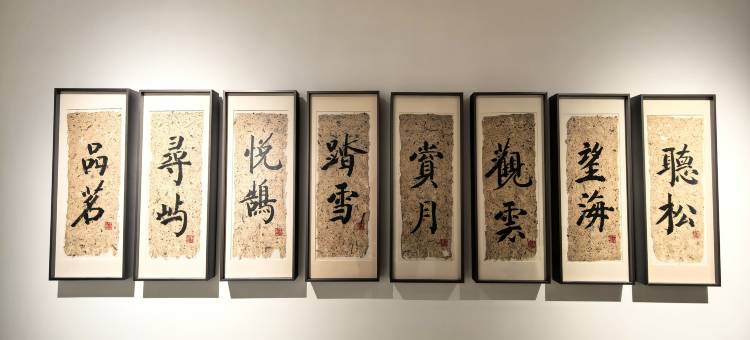 聽松
望海
觀雲
賞月
踏雪
悦鵠
尋屿
品茗